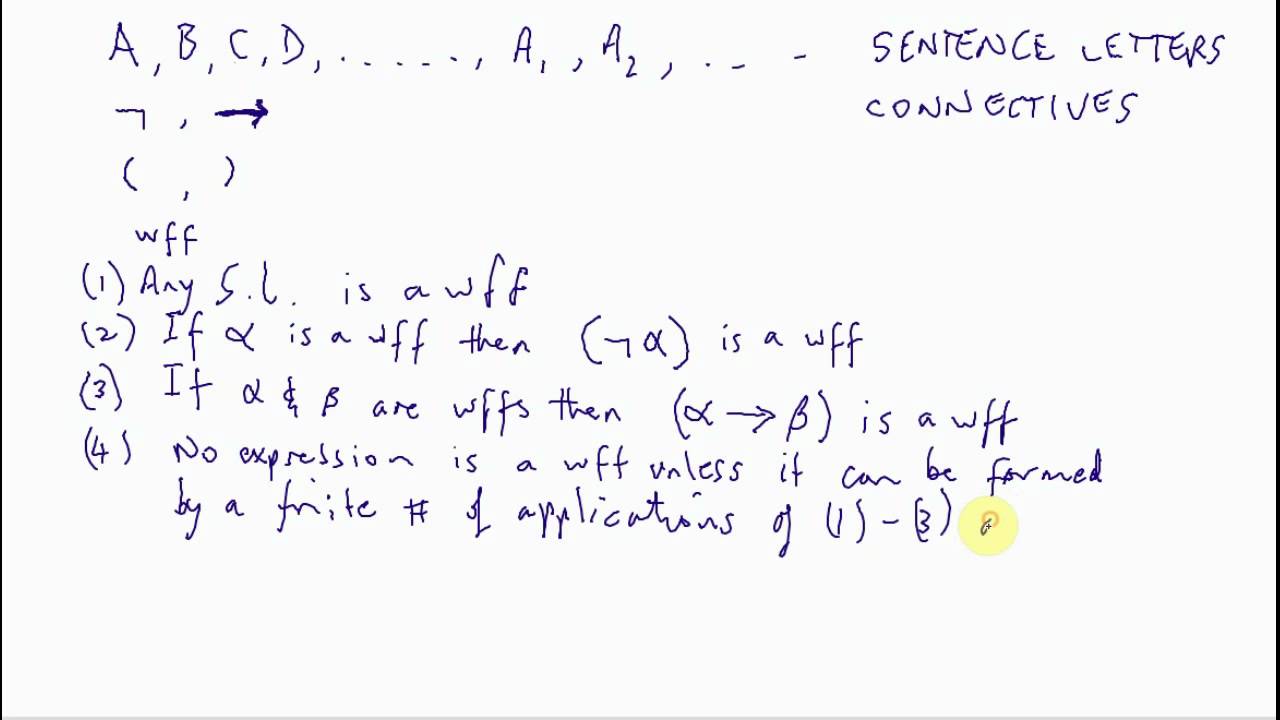 A, B, C, D, ......, A₁, A₂, ... - SENTENCE LETTERS
¬, → CONNECTIVES
( , )
wff
(1) Any S.L. is a wff
(2) If α is a wff then (¬α) is a wff
(3) If α & β are wffs then (α → β) is a wff
(4) No expression is a wff unless it can be formed
by a finite # of applications of (1) - (3)